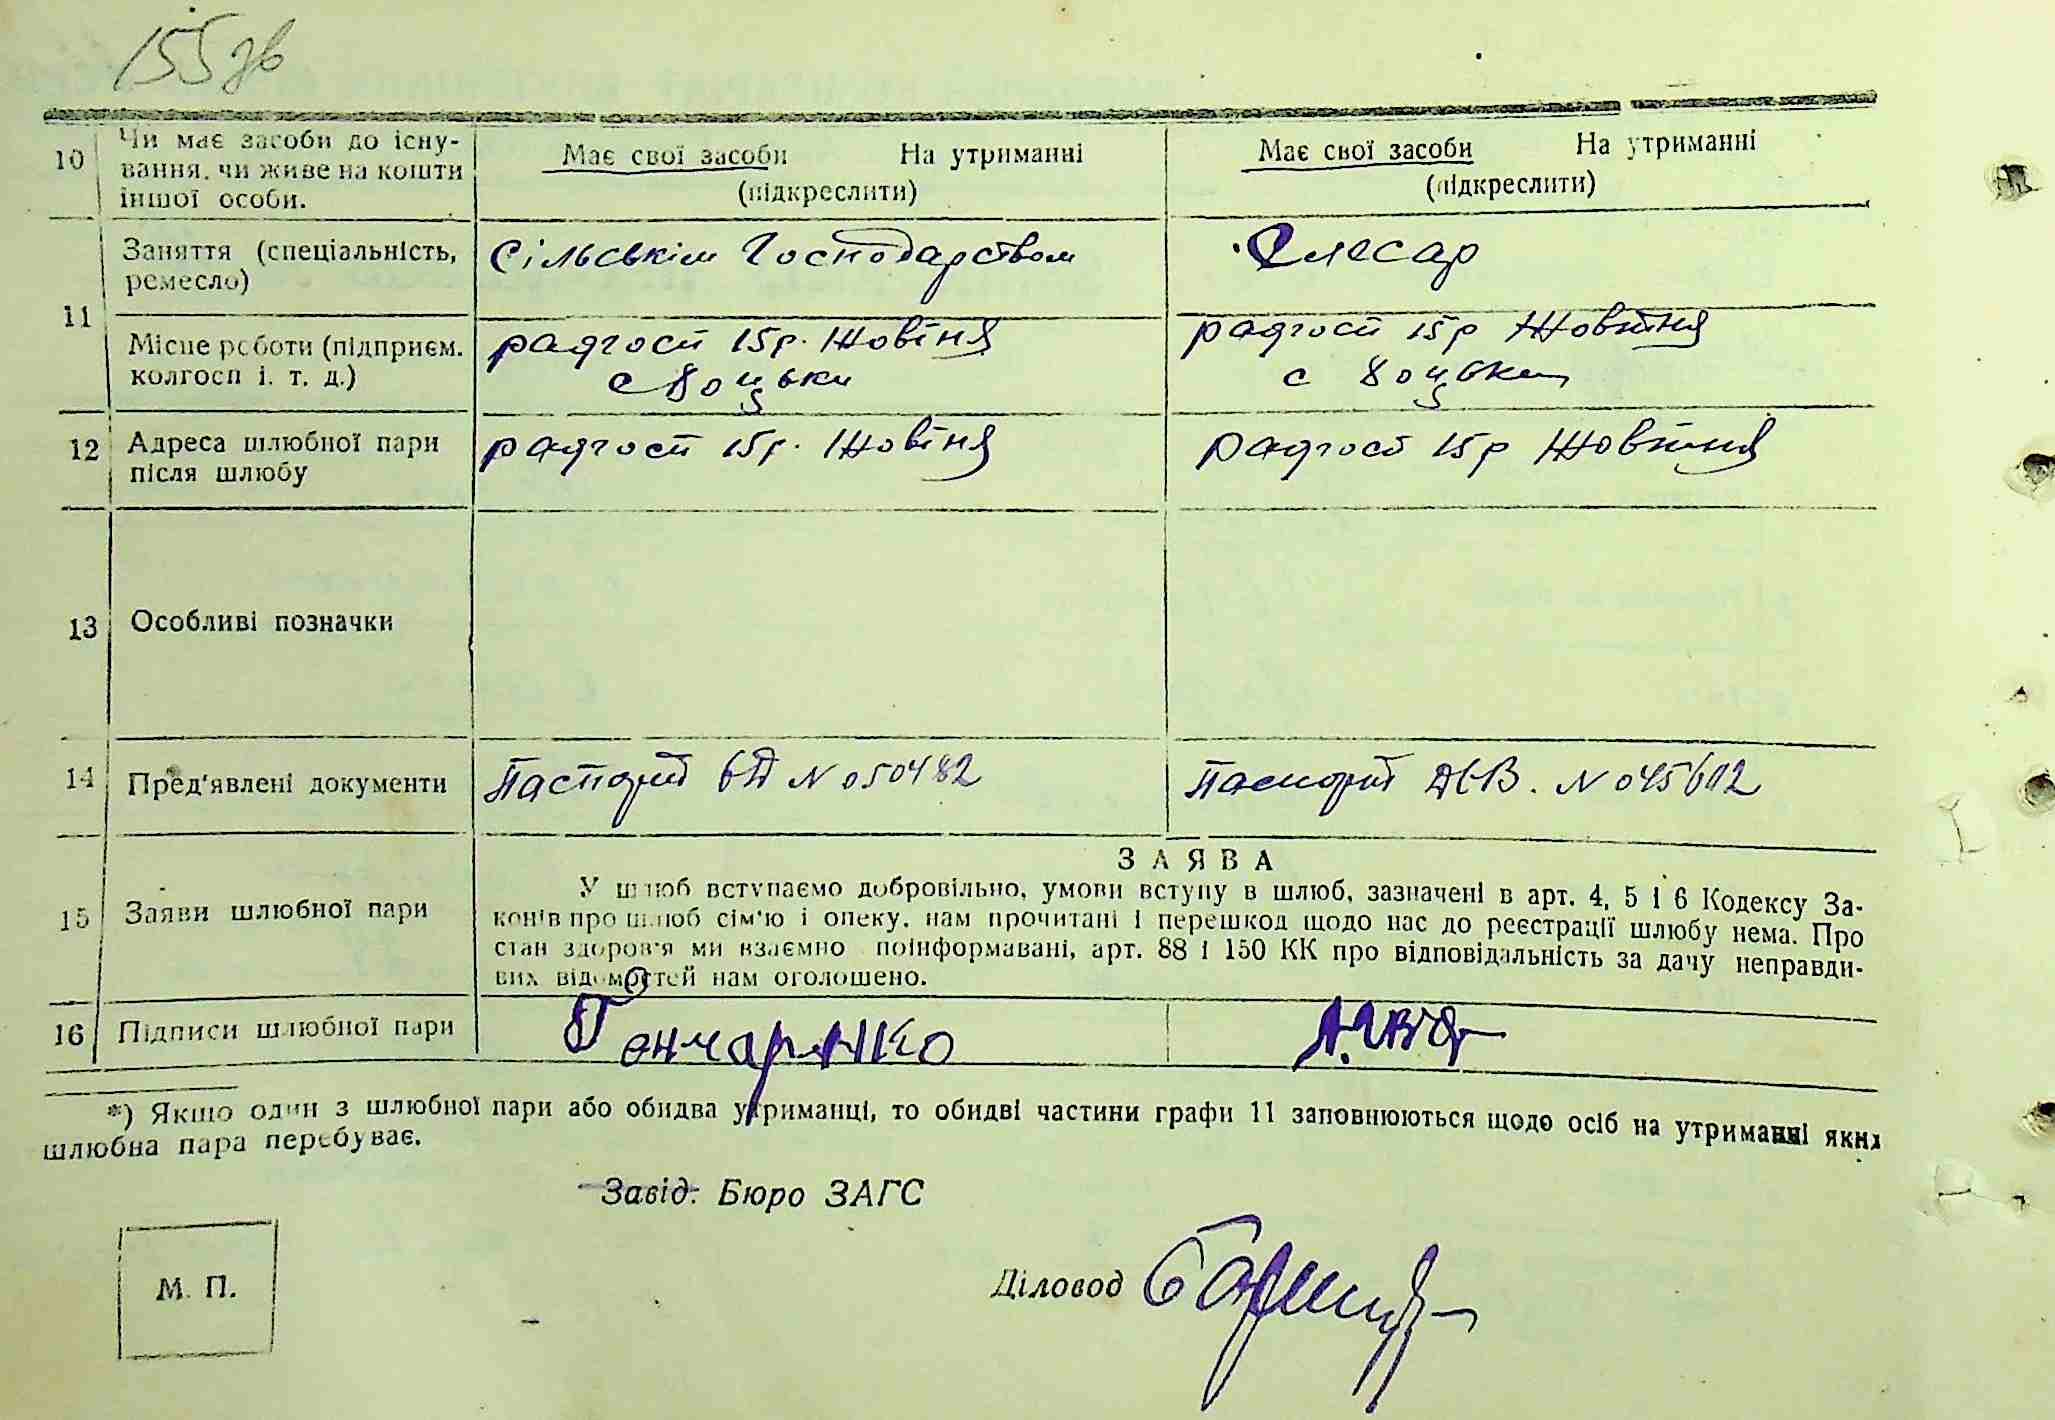 155 зв
10 Чи має засоби до існу- Має свої засоби На утриманні Має свої засоби На утриманні
вання, чи живе на кошти (підкреслити) (підкреслити)
іншої особи.
11 Заняття (спеціальність, Сільськім Господарством Слесар
ремесло)
Місце роботи (підприєм. радгосп 15 р. Жовтня радгосп 15 р Жовтня
колгосп і. т. д.) с с
12 Адреса шлюбної пари радгосп 15 р. Жовтня радгосп 15 р Жовтня
після шлюбу
13 Особливі позначки
14 Пред'явлені документи Паспорт № 050482 Паспорт № 045612
ЗАЯВА
15 Заяви шлюбної пари
У шлюб вступаємо добровільно, умови вступу в шлюб, зазначені в арт. 4, 5 і 6 Кодексу За-
конів про шлюб сім'ю і опеку, нам прочитані і перешкод щодо нас до реєстрації шлюбу нема. Про
стан здоров'я ми взаємно поінформавані, арт. 88 і 150 КК про відповідальність за дачу неправди-
вих відомостей нам оголошено.
16 Підписи шлюбної пари Гончаренко
*) Якшо один з шлюбної пари або обидва утриманці, то обидві частини графи 11 заповнюються щодо осіб на утриманні яких
шлюбна пара перебуває.
Завід. Бюро ЗАГС
Діловод
М. П.